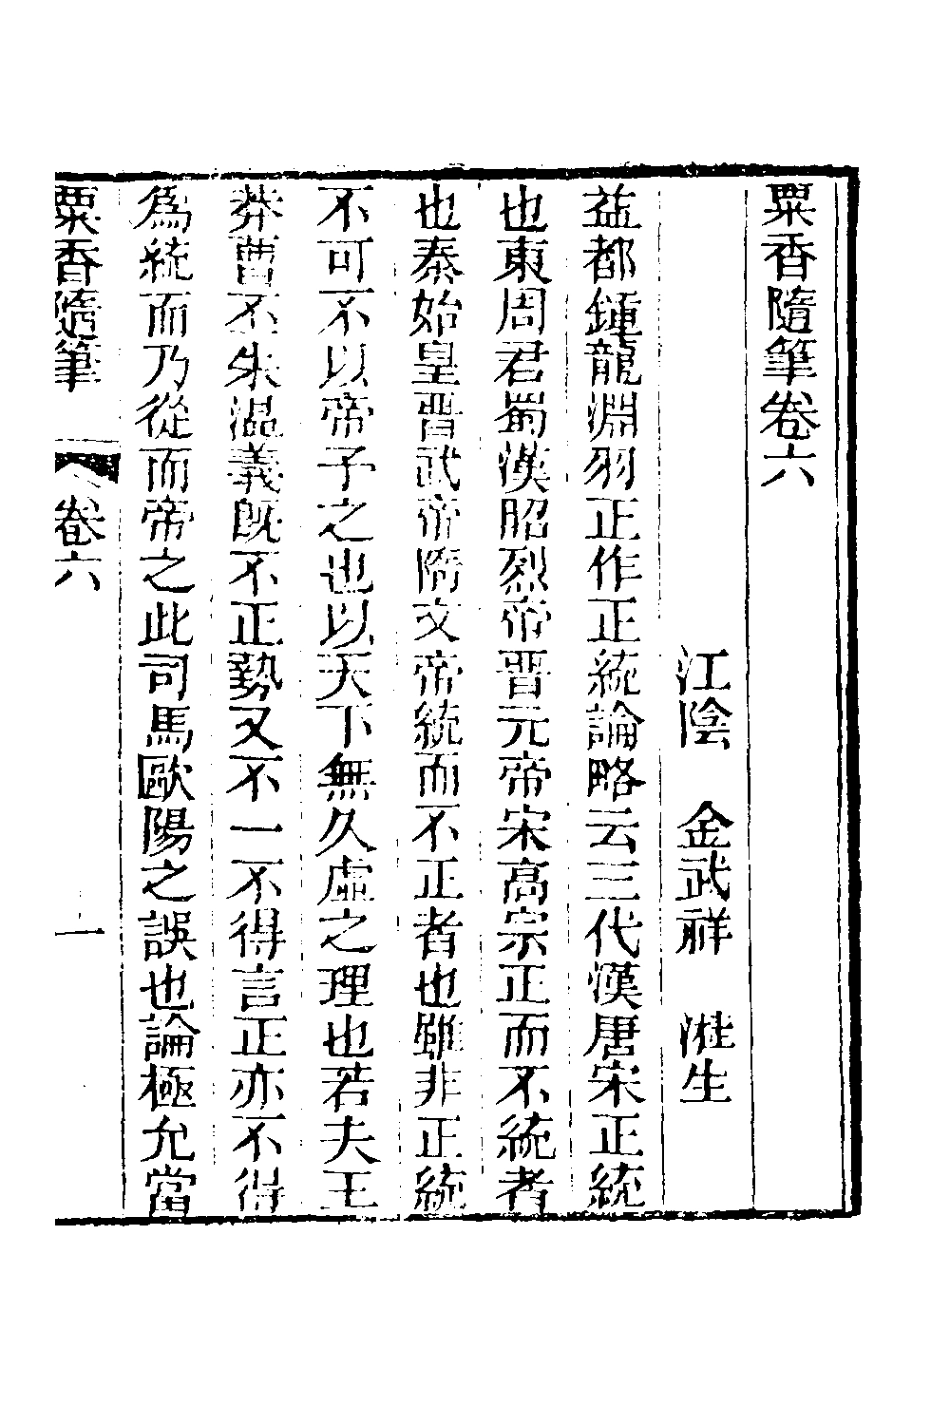 粟香隨筆卷六
江陰　金武祥　溎生
益都鍾龍淵羽正作正統論略云三代漢唐宋正統
也東周君蜀漢昭烈帝晋元帝宋高宗正而不統者
也秦始皇晋武帝隋文帝統而不正者也雖非正統
不可不以帝予之也以天下無久虛之理也若夫王
莽曹丕朱溫義既不正勢又不一不得言正亦不得
為統而乃從而帝之此司馬歐陽之誤也論極允當
粟香隨筆　卷六　一